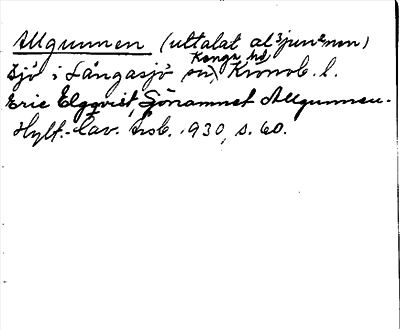 Allgunnen (uttalat al³jun²nen)
Konga hd
Sjö i Långasjö sn, Kronob. l.
Eric Elgqvist, Sjönamnet Allgunnen.
Hylt.-Cav. årsb. 1930, s. 60.